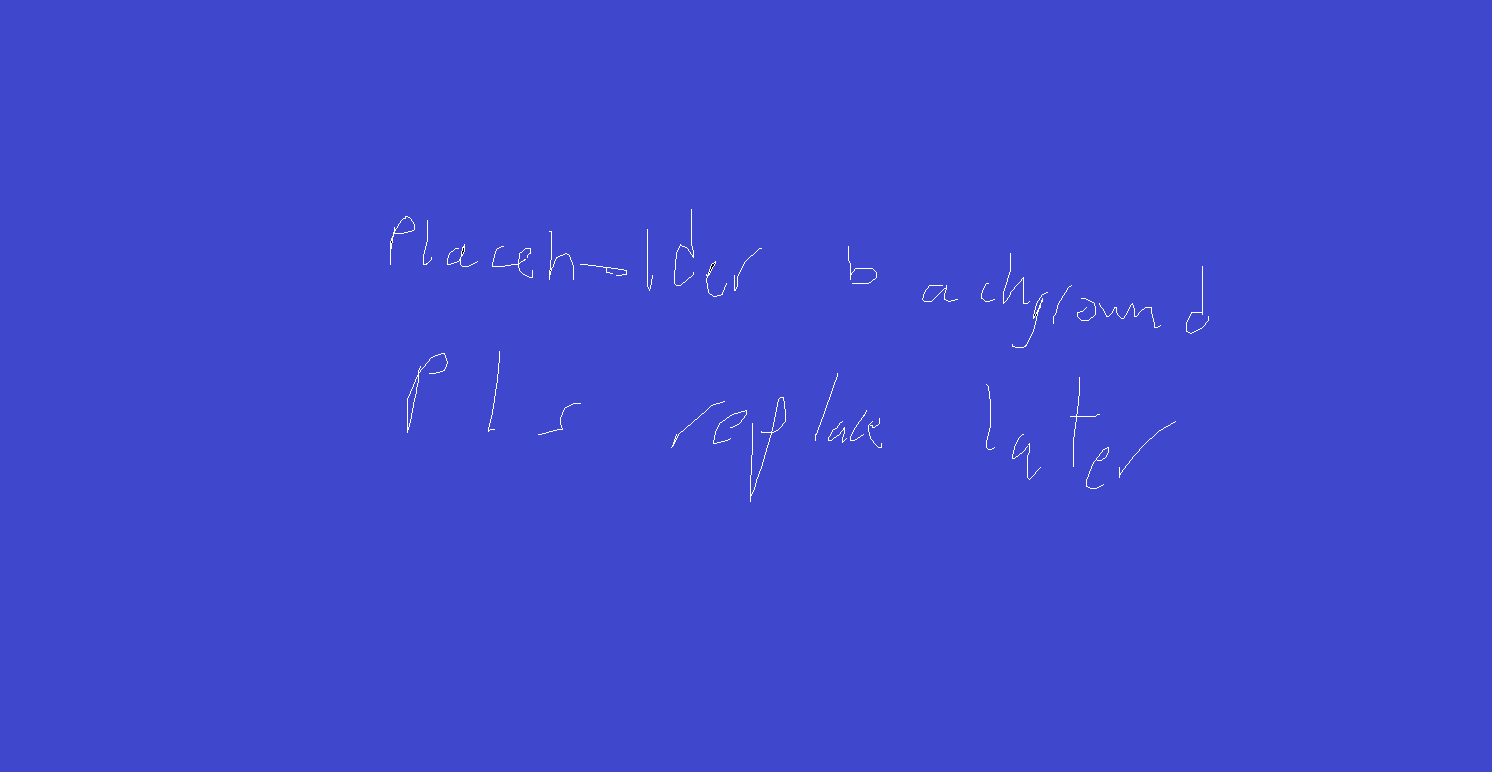 Placeholder background
Pls replace later